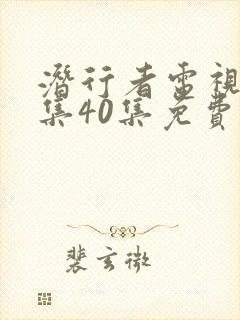 潛行者電視
集40集免費
裴玄微